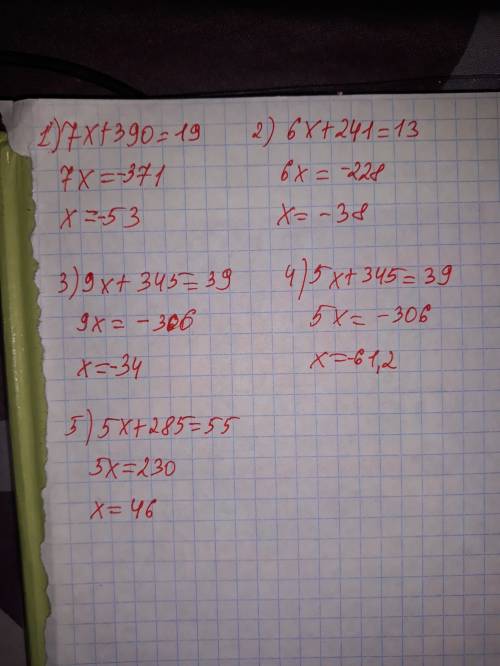 1) 7x+390=19
7x=-371
x=-53
2) 6x+241=13
6x=-228
x=-38
3) 9x+345=39
9x=-306
x=-34
4) 5x+345=39
5x=-306
x=-61,2
5) 5x+285=55
5x=230
x=46